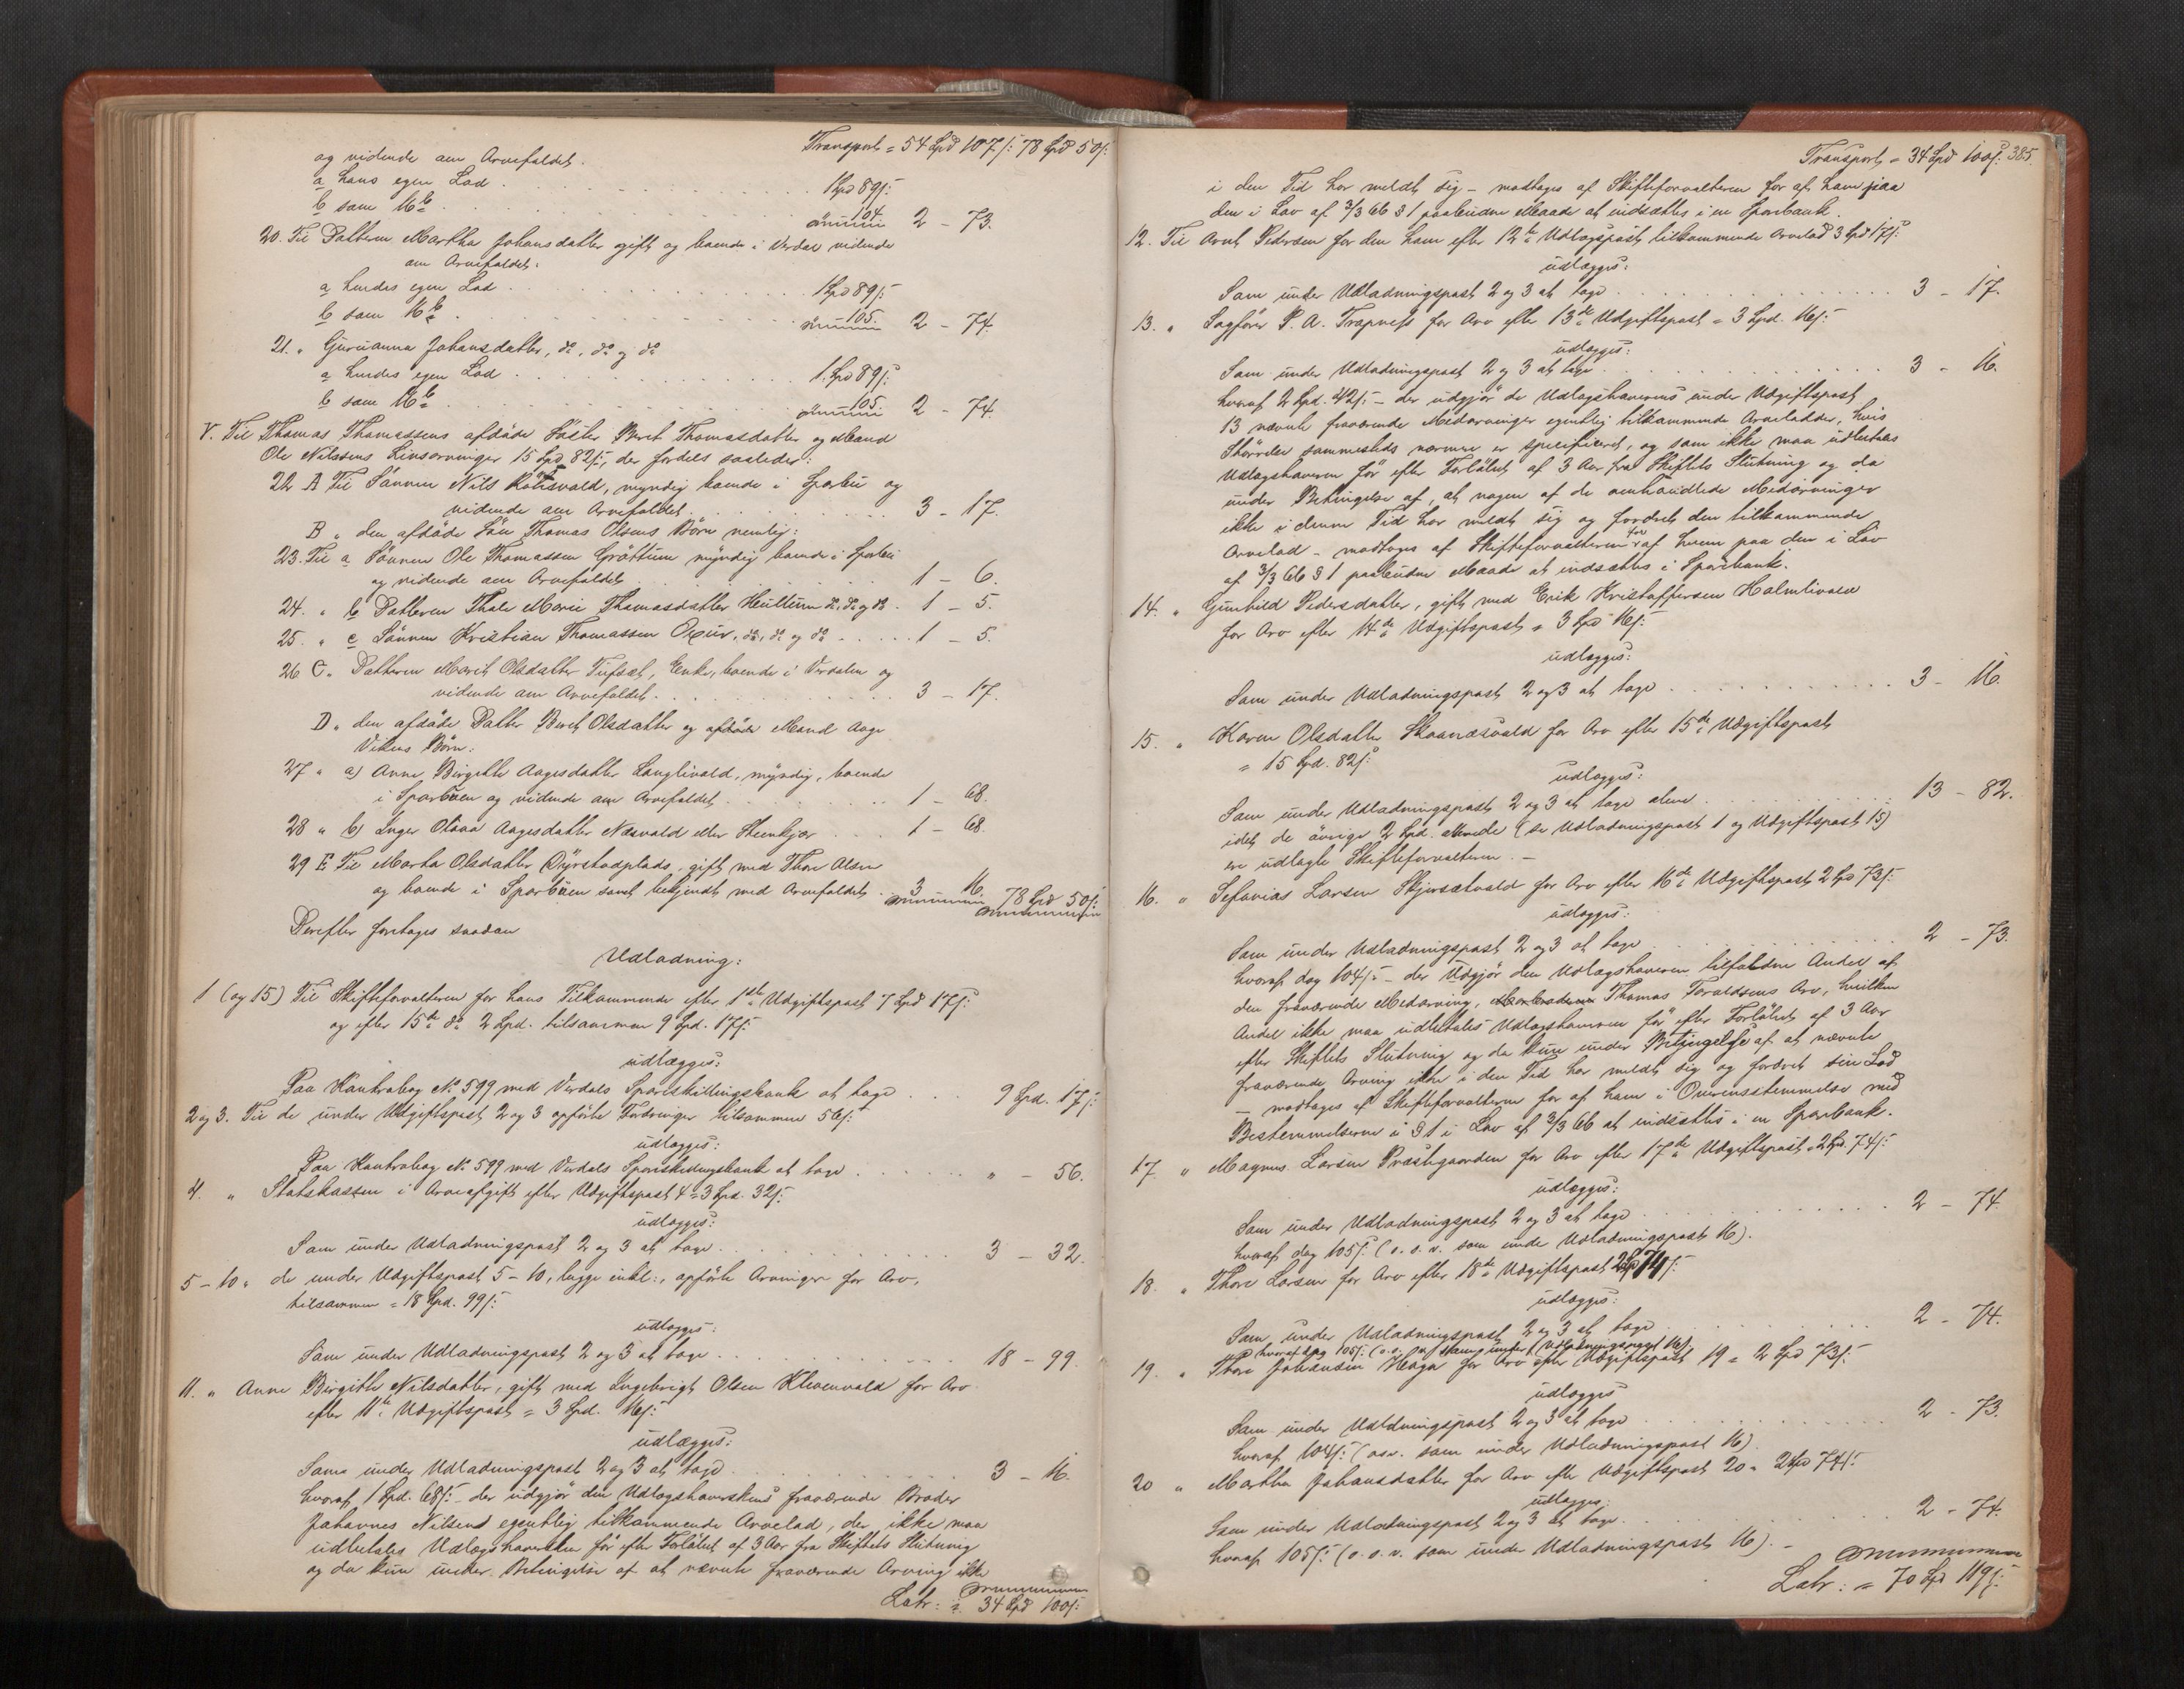 Transport = 54 Spd 107/: 78 Spd 50/:
og vidende om Arvefaldet.
a hans egen Lod . . . 1 Spd 89/:
b som 16 b . . . 104. 2 - 73.
20. Til Datteren Martha Johansdatter gift og boende i Verdal vidende
om Arvefaldet:
a hendes egen Lod . . . 1 Spd 89/:
b som 16 b . . . 105. 2 - 74.
21. " Guruanna Johansdatter, do, do og do
a hendes egen Lod . . . 1 Spd 89/:
b som 16 b . . . 105. 2 - 74.
V. Til Thomas Thomassens afdøde Søster Beret Thomasdatter og Mand
Ole Nilssens Livsarvinger 15 Spd 82/:, der fordeles saaledes:
22 A Til Sønnen Nils Røtisvald, myndig boende i Sparbu og
vidende om Arvefaldet . . . 3 - 17.
B " den afdøde Søn Thomas Olsens Børn nemlig:
23. Til a Sønnen Ole Thomassen Grøttum myndig boende i Sparbu
og vidende om Arvefaldet . . . 1 - 6.
24. " b Datteren Thale Marie Thomasdatter Heullum do, do og do . 1 - 5.
25. " c Sønnen Kristian Thomassen Oxur, do, do og do . . . 1 - 5.
26 C. " Datteren Marit Olsdatter Tufset, Enke, boende i Verdalen og
vidende om Arvefaldet . . . 3 - 17.
D. " den afdøde Datter Beret Olsdatter og afdøde Mand Aage
Vikens Børn:
27 " a) Anne Birgitte Aagesdatter Langlivald, myndig, boende
i Sparbuen og vidende om Arvefaldet . . . 1 - 68.
28 " b) Inger Olava Aagesdatter Næsvald eller Steenkjær . . . 1 - 68.
29 E Til Marta Olsdatter Dyrstadplads, gift med Thore Olsen
og boende i Sparbuen samt bekjendt med Arvefaldet . 3 16. 78 Spd 50/:
Derefter foretages saadan
Udlodning:
1 (og 15) Til Skifteforvalteren for hans Tilkommende efter 1ste Udgiftspost 7 Spd 17/:
og efter 15de do 2 Spd. tilsammen 9 Spd. 17/:
udlægges:
Paa Kontrabog No 599 med Verdals Sparskillingsbank at tage . . . 9 Spd. 17/:
2 og 3. Til de under Udgiftspost 2 og 3 opførte Fordringer tilsammen 56/:
udlægges:
Paa Kontrabog No 599 med Verdals Sparskillingsbank at tage . . . " - 56.
4. " Statskassen i Arveafgift efter Udgiftspost 4 = 3 Spd. 32/:
udlægges:
Som under Udlodningspost 2 og 3 at tage . . . 3 - 32.
5 - 10 " de under Udgiftspost 5 - 10, begge inkl:, opførte Arvinger for Arv,
tilsammen = 18 Spd. 99/:
udlægges:
Som under Udlodningspost 2 og 3 at tage . . . 18 - 99.
11. " Anne Birgitte Nilsdatter, gift med Ingebrigt Olsen Klevenvald for Arv
efter 11te Udgiftspost = 3 Spd. 16/:
udlægges:
Som under Udlodningspost 2 og 3 at tage . . . 3 - 16.
hvoraf 1 Spd. 68/: - der udgjør den Udlægshaverskens fraværende Broder
Johannes Nilsens egentlig tilkommende Arvelod, der ikke maa
udbetales Udlægshaversken før efter Forløbet af 3 Aar fra Skiftets Slutning
og da kun under Betingelse af at nævnte fraværende Arving ikke
Latr: = 34 Spd 100/:
Transport = 34 Spd 100/: 385.
i den Tid har meldt sig - modtages af Skifteforvalteren for af ham paa
den i Lov af 3/3 66 § 1 paabudne Maade at indsættes i en Sparebank.
12. Til Arnt Pedersen for den ham efter 12te Udlægspost tilkommende Arvelod 3 Spd 17/:
udlægges:
Som under Udlodningspost 2 og 3 at tage . . . 3 - 17.
13. " Sagfører P. A. Trapness for Arv efter 13de Udgiftspost = 3 Spd. 16/:
udlægges:
Som under Udlodningspost 2 og 3 at tage . . . 3 - 16.
hvoraf 2 Spd. 42/: - der udgjør de Udlægshaverens under Udgiftspost
13 nævnte fraværende Medarvinger egentlig tilkommende Arvelodder, hvis
Størrelse sammesteds nærmere er specificeret, og som ikke maa udbetales
Udlægshaveren før efter Forløbet af 3 Aar fra Skiftets Slutning og da
under Betingelse af, at nogen af de omhandlede Medarvinger
ikke i denne Tid har meldt sig og fordret den tilkommende
Arvelod - modtages af Skifteforvalteren for af ham paa den i Lov
af 3/3 66 § 1 paabudne Maade at indsættes i Sparebank.
14. " Gunhild Pedersdatter, gift med Erik Kristoffersen Holmlivald
for Arv efter 14de Udgiftspost = 3 Spd 16/:
udlægges:
Som under Udlodningspost 2 og 3 at tage . . . 3 - 16.
15. " Karen Olsdatter Skaanæsvald for Arv efter 15de Udgiftspost
= 15 Spd. 82/:
udlægges:
Som under Udlodningspost 2 og 3 at tage alene . . . 13 - 82.
idet de øvrige 2 Spd. allerede (se Udlodningspost 1 og Udgiftspost 15)
er udlagte Skifteforvalteren. -
16. " Sefanias Larsen Skjørsætvald for Arv efter 16de Udgiftspost 2 Spd 73/:
udlægges:
Som under Udlodningspost 2 og 3 at tage . . . 2 - 73.
hvoraf dog 104/: - der Udgjør den Udlægshaveren tilfaldne Andel af
den fraværende Medarving, Thomas Toraldsens Arv, hvilken
Andel ikke maa udbetales Udlægshaveren før efter Forløbet af 3 Aar
efter Skiftets Slutning og da kun under Betingelse af at nævnte
fraværende Arving ikke i den Tid har meldt sig og fordret sin Lod
- modtages af Skifteforvalteren for af ham i Overensstemmelse med
Bestemmelserne i § 1 i Lov af 3/3 66 at indsættes i en Sparebank.
17. " Magnus Larsen Præstegaarden for Arv efter 17de Udgiftspost = 2 Spd. 74/:
udlægges:
Som under Udlodningspost 2 og 3 at tage . . . 2 - 74.
hvoraf dog 105/: (o. s. v. som under Udlodningspost 16).
18. " Thore Larsen for Arv efter 18de Udgiftspost 2 Spd 74/:
udlægges:
Som under Udlodningspost 2 og 3 at tage . . . 2 - 74.
hvoraf dog 105/: (o. s. v. som under Udlodningspost 16)
19. " Thore Johansen Haga for Arv efter Udgiftspost 19 = 2 Spd 73/:
udlægges
Som under Udlodningspost 2 og 3 at tage . . . 2 - 73.
hvoraf 104/: (osv. som under Udlodningspost 16).
20 " Martha Johansdatter for Arv efter Udgiftspost 20 = 2 Spd 74/:
udlægges:
Som under Udlodningspost 2 og 3 at tage . . . 2 - 74.
hvoraf 105/: (o. s. v. som under Udlodningspost 16). -
Latr: = 70 Spd 119/: